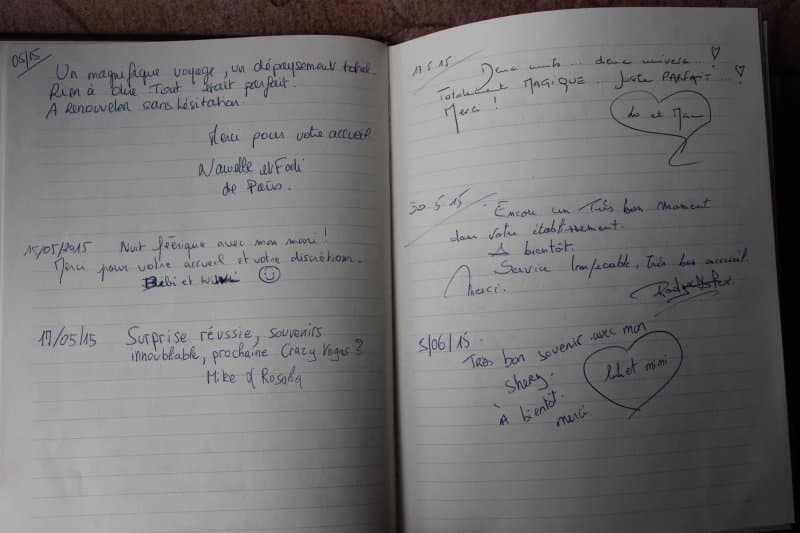 05/15
Un magnifique voyage, un dépaysement total.
Rien à dire Tout était parfait.
A Renouveler sans hésitation.
Merci pour votre accueil
Nawelle et Fodi
de Paris.
15/05/2015 Nuit féérique avec mon mari !
Merci pour votre accueil et votre discrétion.
Bébi et
17/05/15 Surprise réussie, souvenirs
innoubliable, prochaine Crazy Vegas ?
Mike & Rosaha
17.5.15 Deux nuits... deux univers... ♡
Totalement MAGIQUE ... Juste PARFAIT ... ♡
Merci !
Lo et Mam
30.5.15 Encore un Très bon moment
dans votre établissement.
A bientôt.
Service Impecable, très bon accueil.
Merci.
5/06/15
Très bon souvenir avec mon
Shery.
Lulu et mimi
À bientôt.
merci